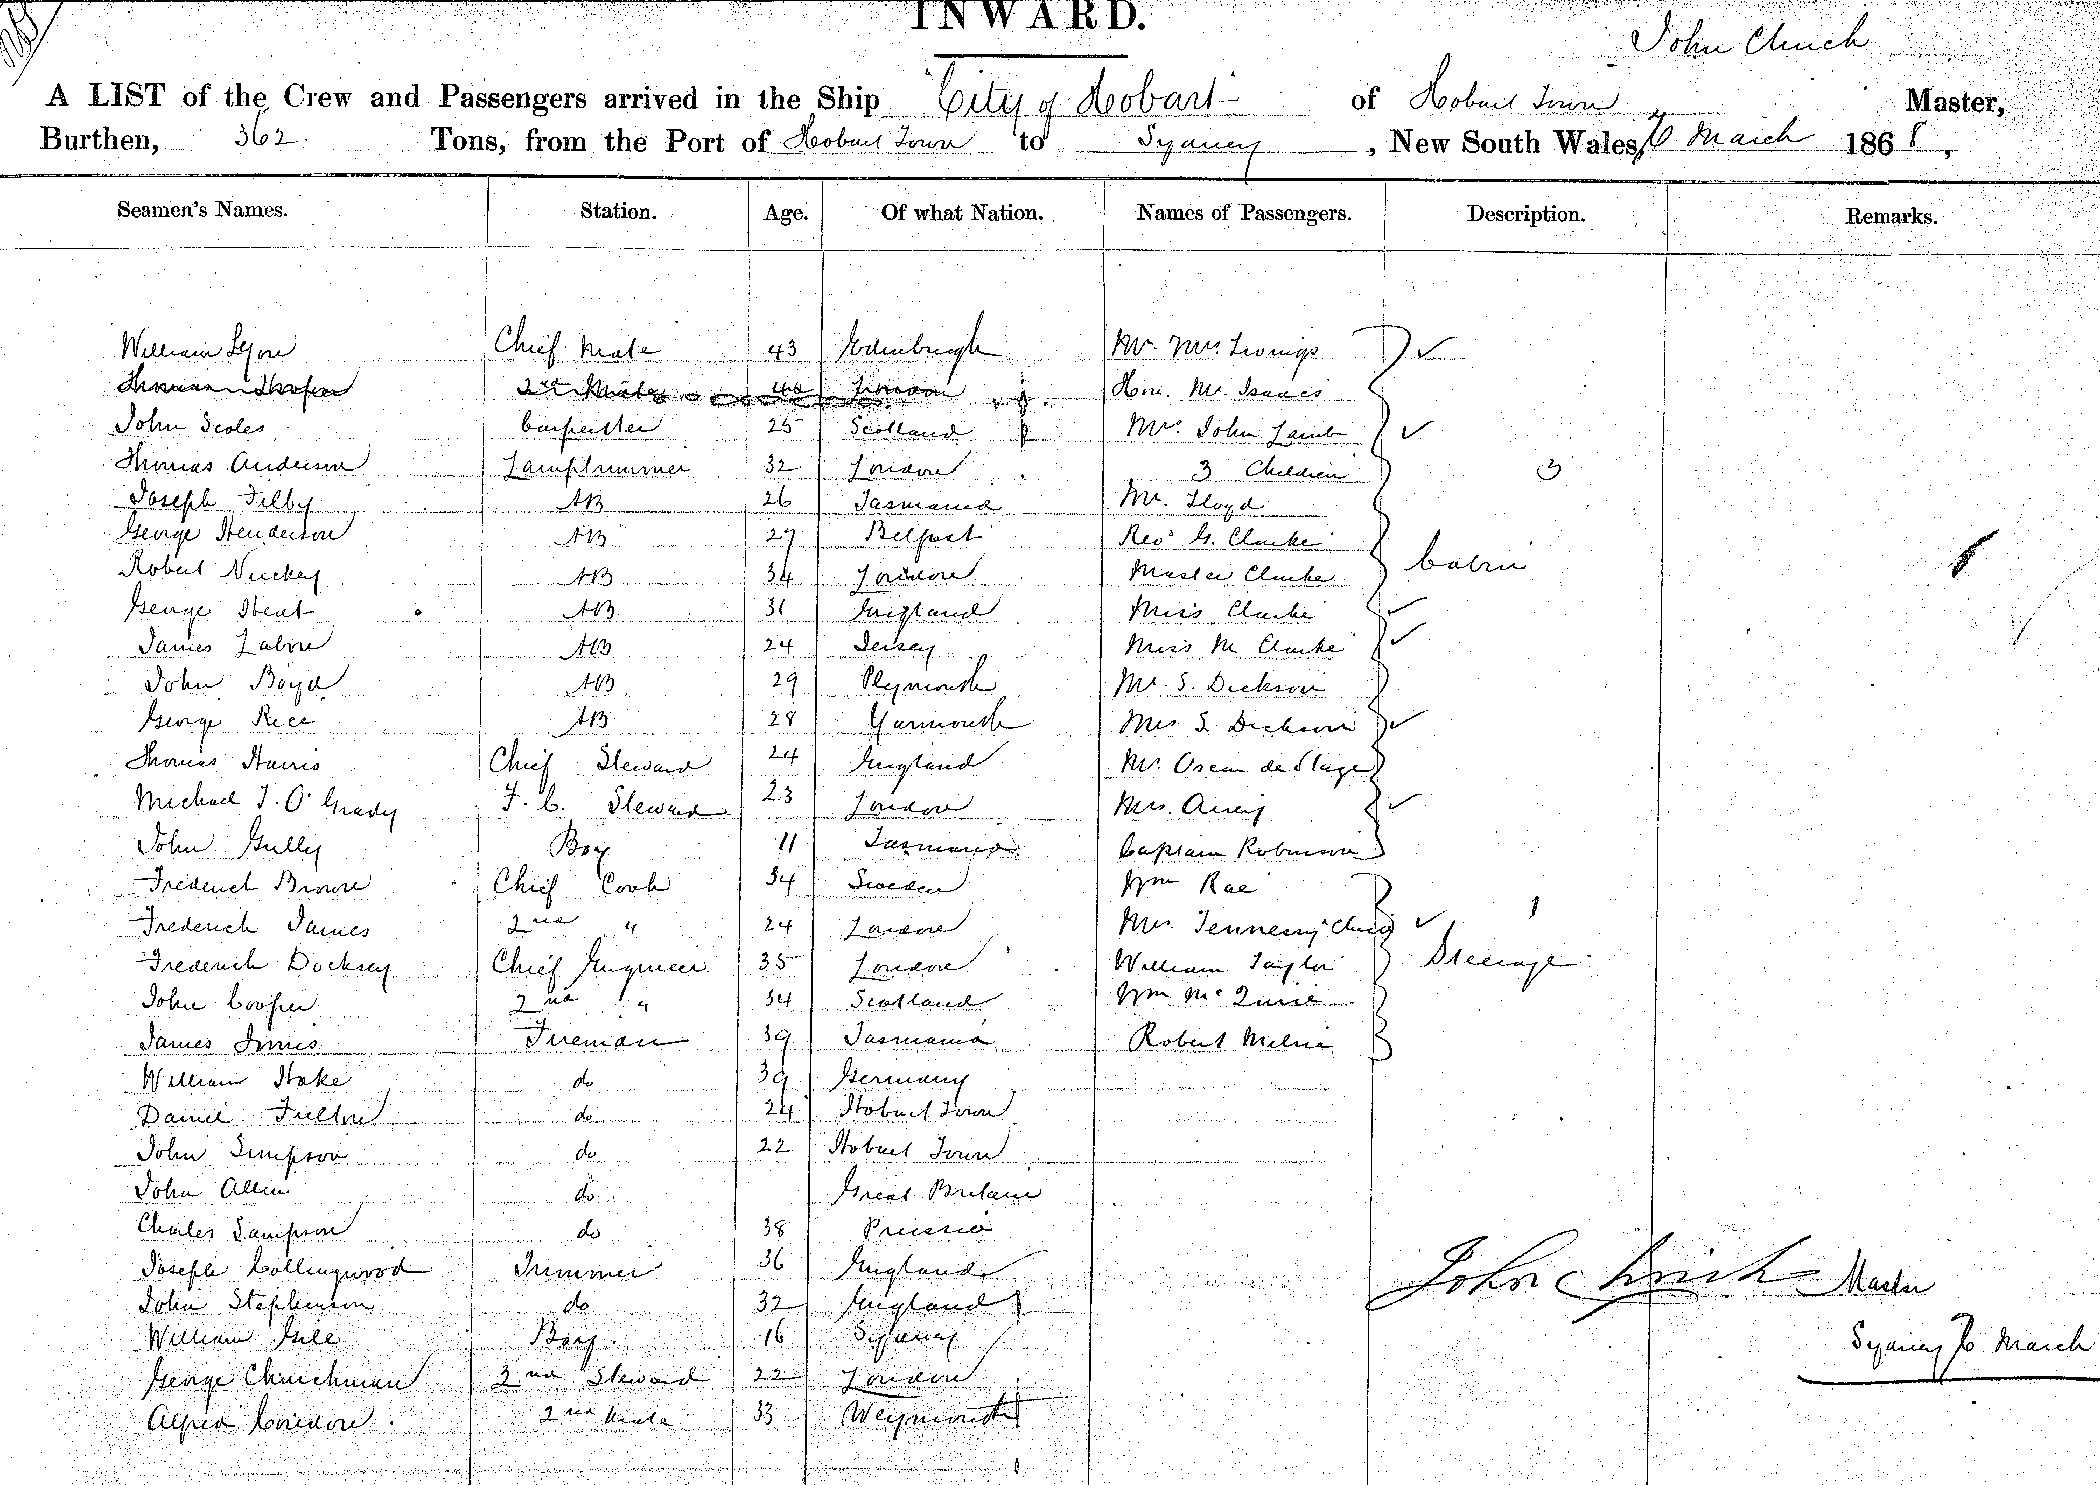 INWARD.
John Clinch
A LIST of the Crew and Passengers arrived in the Ship "City of Hobart" of Hobart Town Master,
Burthen, 362 Tons, from the Port of Hobart Town to Sydney, New South Wales, March 1868,
Seamen's Names. Station. Age. Of what Nation. Names of Passengers. Description. Remarks.
William Lyon Chief Mate 43 Edinburgh Mr. Mrs.
Thomas 2nd Mate 40 London Hon. Mr. Isaacs
John Scoles Carpenter 25 Scotland Mrs. John Lamb
Thomas Anderson Lamptrimmer 32 London 3 Children 3
Joseph Filby AB 26 Tasmania Mr. Lloyd
George Henderson AB 27 Belfast Revd G. Clarke
Robert Nuckey AB 34 London Master Clarke Cabin
George Heat AB 31 England Miss Clarke
James Labon AB 24 Jersey Miss M Clarke
John Boyd AB 29 Plymouth Mr. S. Dickson
George Rice AB 28 Yarmouth Mrs S. Dickson
Thomas Harris Chief Steward 24 England Mr. Oscar de Stage
Michael J. O'Grady F. C. Steward 23 London Mrs.
John Gully Boy 11 Tasmania Captain Robinson
Frederick Brown Chief Cook 34 Sweden Wm Rae
Frederick James 2nd " 24 London Mrs. Tennessy Child 1
Frederick Docksey Chief Engineer 35 London William Taylor Steerage
John Cooper 2nd " 34 Scotland Wm
James Innis Fireman 39 Tasmania Robert Milne
William Hake do 39 Germany
Daniel Fulton do 24 Hobart Town
John Simpson do 22 Hobart Town
John Allen do Great Britain
Charles Sampson do 38 Prussia
Joseph Collingwood Trimmer 36 England
John Clinch Master
John Stephenson do 32 England
William Gill Boy. 16 Sydney
Sydney March
George Churchman 2nd Steward 22 London
Alfred Condon 2nd Mate 33 Weymouth